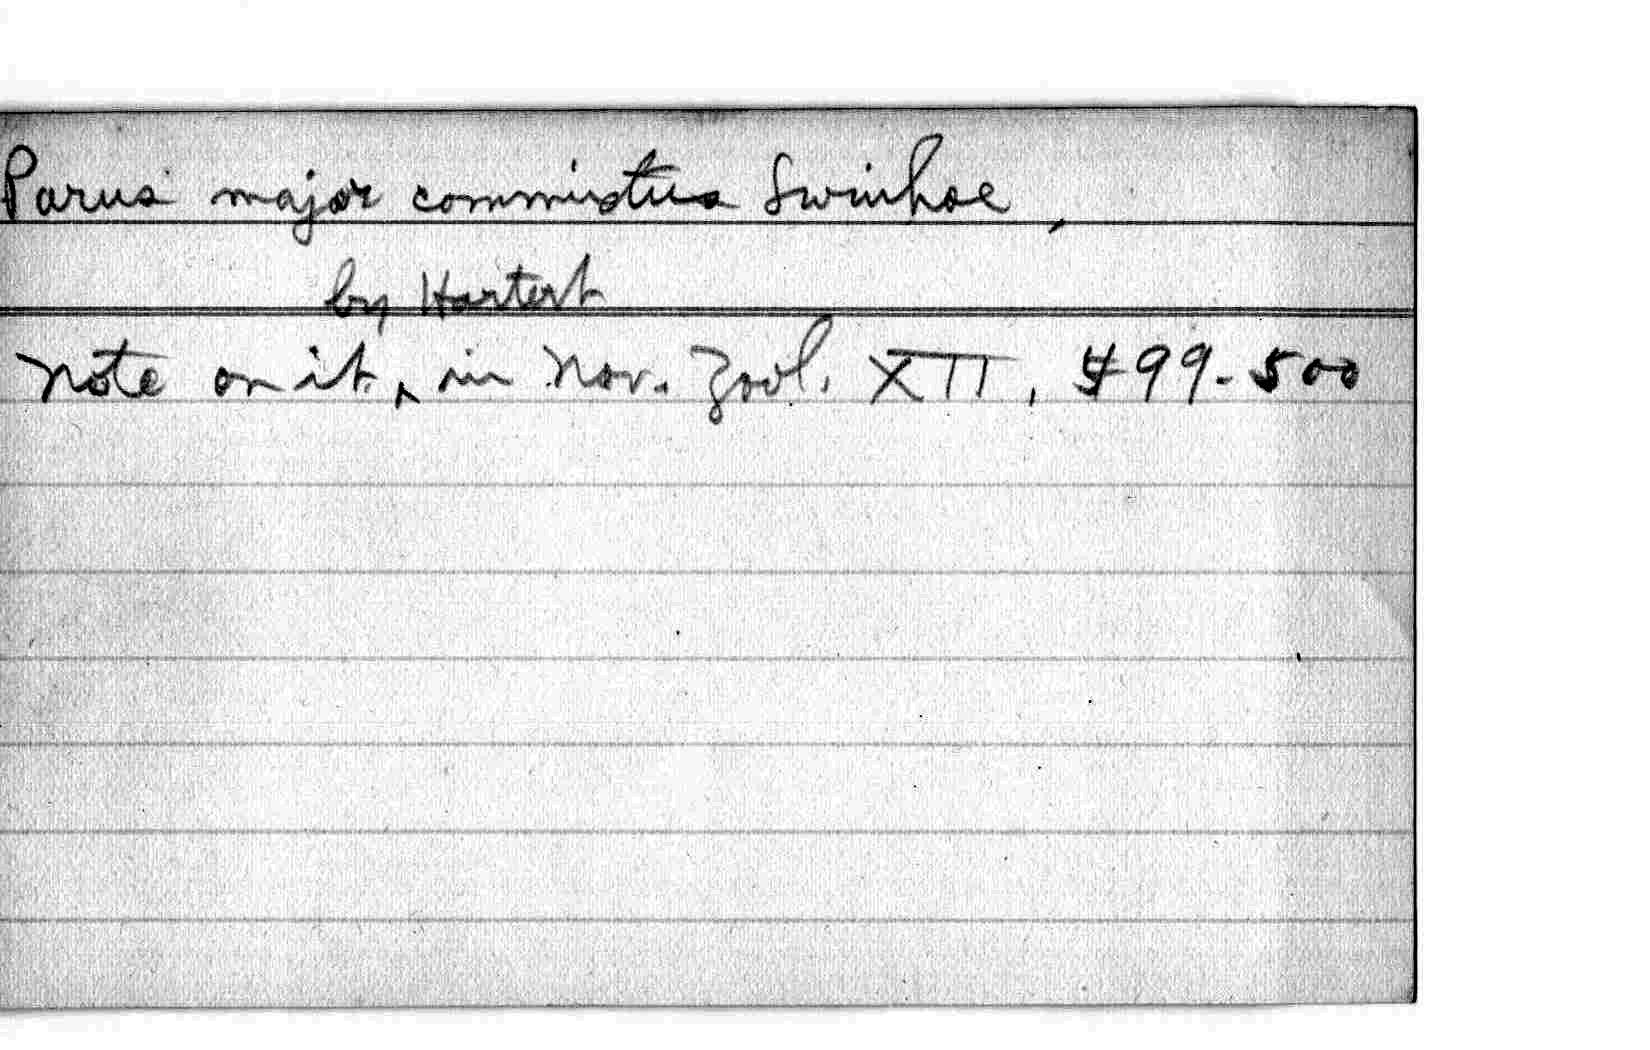 Parus major commixtus Swinhoe,
by Hartert
Note on it ‸ in Nov. Zool. XII, 499-500